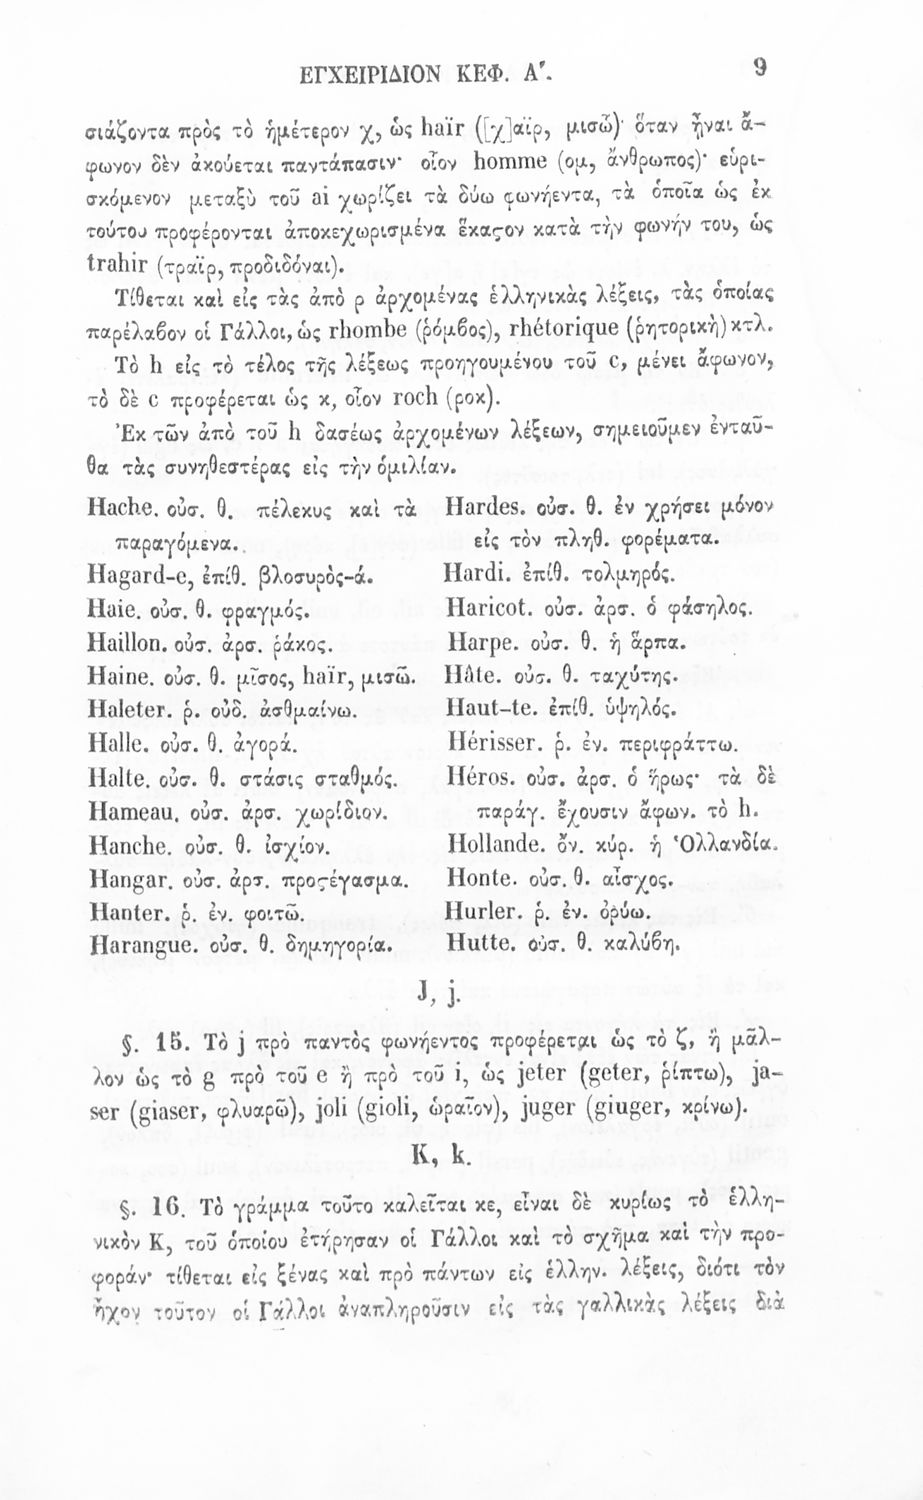 ΕΓΧΕΙΡΙΔΙΟΝ ΚΕΦ. Α΄. 9
σιάζοντα πρὸς τὸ ἡμέτερον χ, ὡς haïr ([χ]αΐρ, μισῶ)· ὅταν ᾖναι ἄ-
φωνον δὲν ἀκούεται παντάπασιν· οἷον homme (ομ, ἄνθρωπος)· εὑρι-
σκόμενον μεταξὺ τοῦ ai χωρίζει τὰ δύω φωνήεντα, τὰ ὁποῖα ὡς ἐκ
τούτου προφέρονται ἀποκεχωρισμένα ἕκαϛον κατὰ τὴν φωνήν του, ὡς
trahir (τραΐρ, προδιδόναι).
Τίθεται καὶ εἰς τὰς ἀπὸ ρ ἀρχομένας ἑλληνικὰς λέξεις, τὰς ὁποίας
παρέλαβον οἱ Γάλλοι, ὡς rhombe (ῥόμβος), rhétorique (ῥητορικὴ) κτλ.
Τὸ h εἰς τὸ τέλος τῆς λέξεως προηγουμένου τοῦ c, μένει ἄφωνον,
τὸ δὲ c προφέρεται ὡς κ, οἷον roch (ροκ).
Ἐκ τῶν ἀπὸ τοῦ h δασέως ἀρχομένων λέξεων, σημειοῦμεν ἐνταῦ-
θα τὰς συνηθεστέρας εἰς τὴν ὁμιλίαν.
Hache. οὐσ. θ. πέλεκυς καὶ τὰ
παραγόμενα.
Hagard-e, ἐπίθ. βλοσυρὸς-ά.
Haie. οὐσ. θ. φραγμός.
Haillon. οὐσ. ἀρσ. ῥάκος.
Haine. οὐσ. θ. μῖσος, haïr, μισῶ.
Haleter. ῥ. οὐδ. ἀσθμαίνω.
Halle. οὐσ. θ. ἀγορά.
Halte. οὐσ. θ. στάσις σταθμός.
Hameau. οὐσ. ἀρσ. χωρίδιον.
Hanche. οὐσ. θ. ἰσχίον.
Hangar. οὐσ. ἀρσ. προϛέγασμα.
Hanter. ῥ. ἐν. φοιτῶ.
Harangue. οὐσ. θ. δημηγορία.
Hardes. οὐσ. θ. ἐν χρήσει μόνον
εἰς τὸν πληθ. φορέματα.
Hardi. ἐπίθ. τολμηρός.
Haricot. οὐσ. ἀρσ. ὁ φάσηλος.
Harpe. οὐσ. θ. ἡ ἅρπα.
Hâte. οὐσ. θ. ταχύτης.
Haut-te. ἐπίθ. ὑψηλός.
Hérisser. ῥ. ἐν. περιφράττω.
Héros. οὐσ. ἀρσ. ὁ ἥρως· τὰ δὲ
παράγ. ἔχουσιν ἄφων. τὸ h.
Hollande. ὄν. κύρ. ἡ Ὁλλανδία.
Honte. οὐσ. θ. αἶσχος.
Hurler. ῥ. ἐν. ὀρύω.
Hutte. οὐσ. θ. καλύβη.
J, j.
§. 15. Τὸ j πρὸ παντὸς φωνήεντος προφέρεται ὡς τὸ ζ, ἢ μᾶλ-
λον ὡς τὸ g πρὸ τοῦ e ἢ πρὸ τοῦ i, ὡς jeter (geter, ῥίπτω), ja-
ser (giaser, φλυαρῶ), joli (gioli, ὡραῖον), juger (giuger, κρίνω).
K, k.
§. 16. Τὸ γράμμα τοῦτο καλεῖται κε, εἶναι δὲ κυρίως τὸ ἑλλη-
νικὸν Κ, τοῦ ὁποίου ἐτήρησαν οἱ Γάλλοι καὶ τὸ σχῆμα καὶ τὴν προ-
φοράν· τίθεται εἰς ξένας καὶ πρὸ πάντων εἰς ἑλλην. λέξεις, διότι τὸν
ἦχον τοῦτον οἱ Γάλλοι ἀναπληροῦσιν εἰς τὰς γαλλικὰς λέξεις διὰ